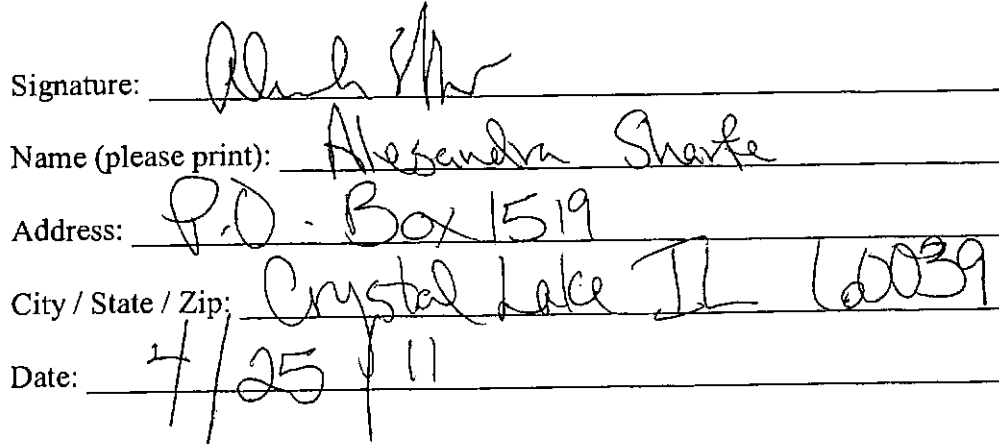 Signature:
Name (please print): Alesandra Sharfe
Address: P.O. Box 1519
City / State / Zip: Crystal Lake IL 60039
Date: 4/25/11